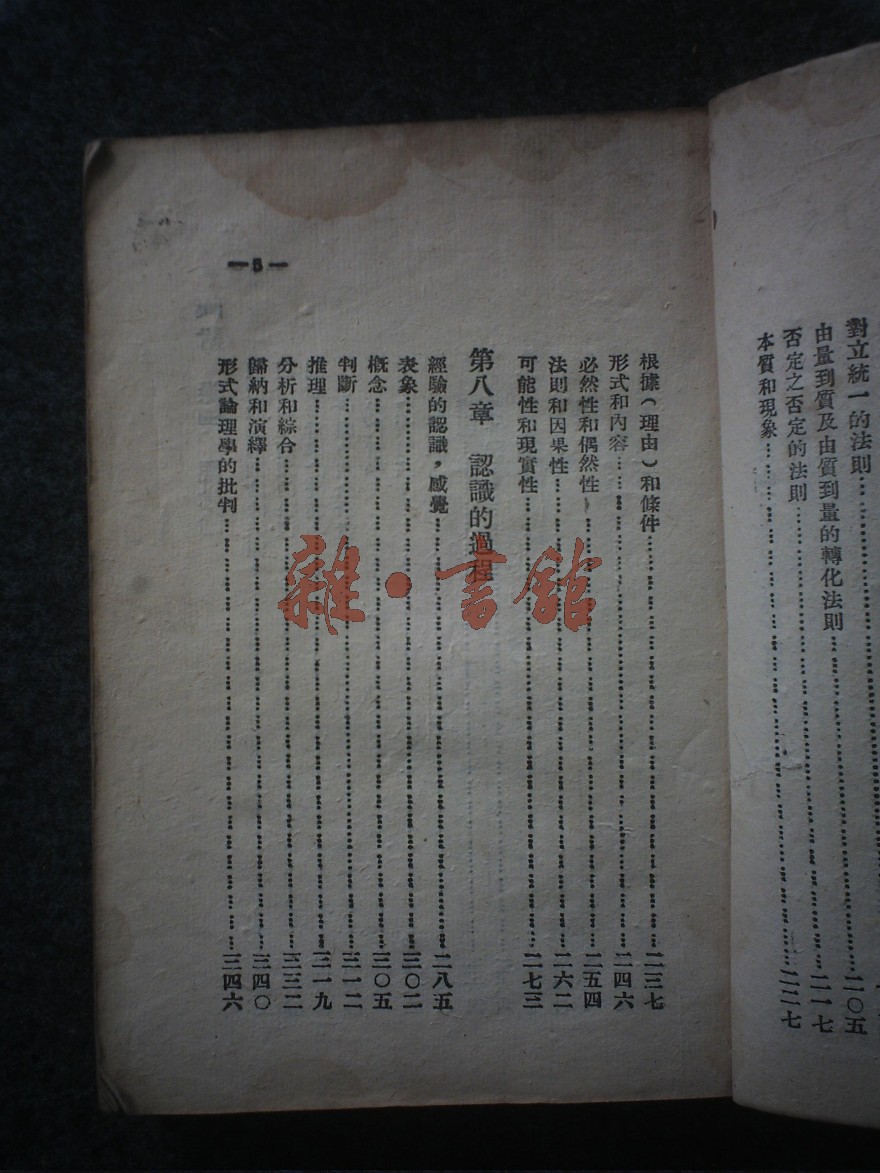 對立統一的法則……二〇五
由量到質及由質到量的轉化法則……二一七
否定之否定的法則
本質和現象……二二七
—5—
根據(理由)和條件……二三七
形式和內容……二四六
必然性和偶然性……二五四
法則和因果性……二六二
可能性和現實性……二七三
第八章 認識的過程
經驗的認識,感覺……二八五
表象……三〇二
概念……三〇五
判斷……三一二
推理……三一九
分析和綜合……三三二
歸納和演繹……三四〇
形式論理學的批判……三四六
雜·書館